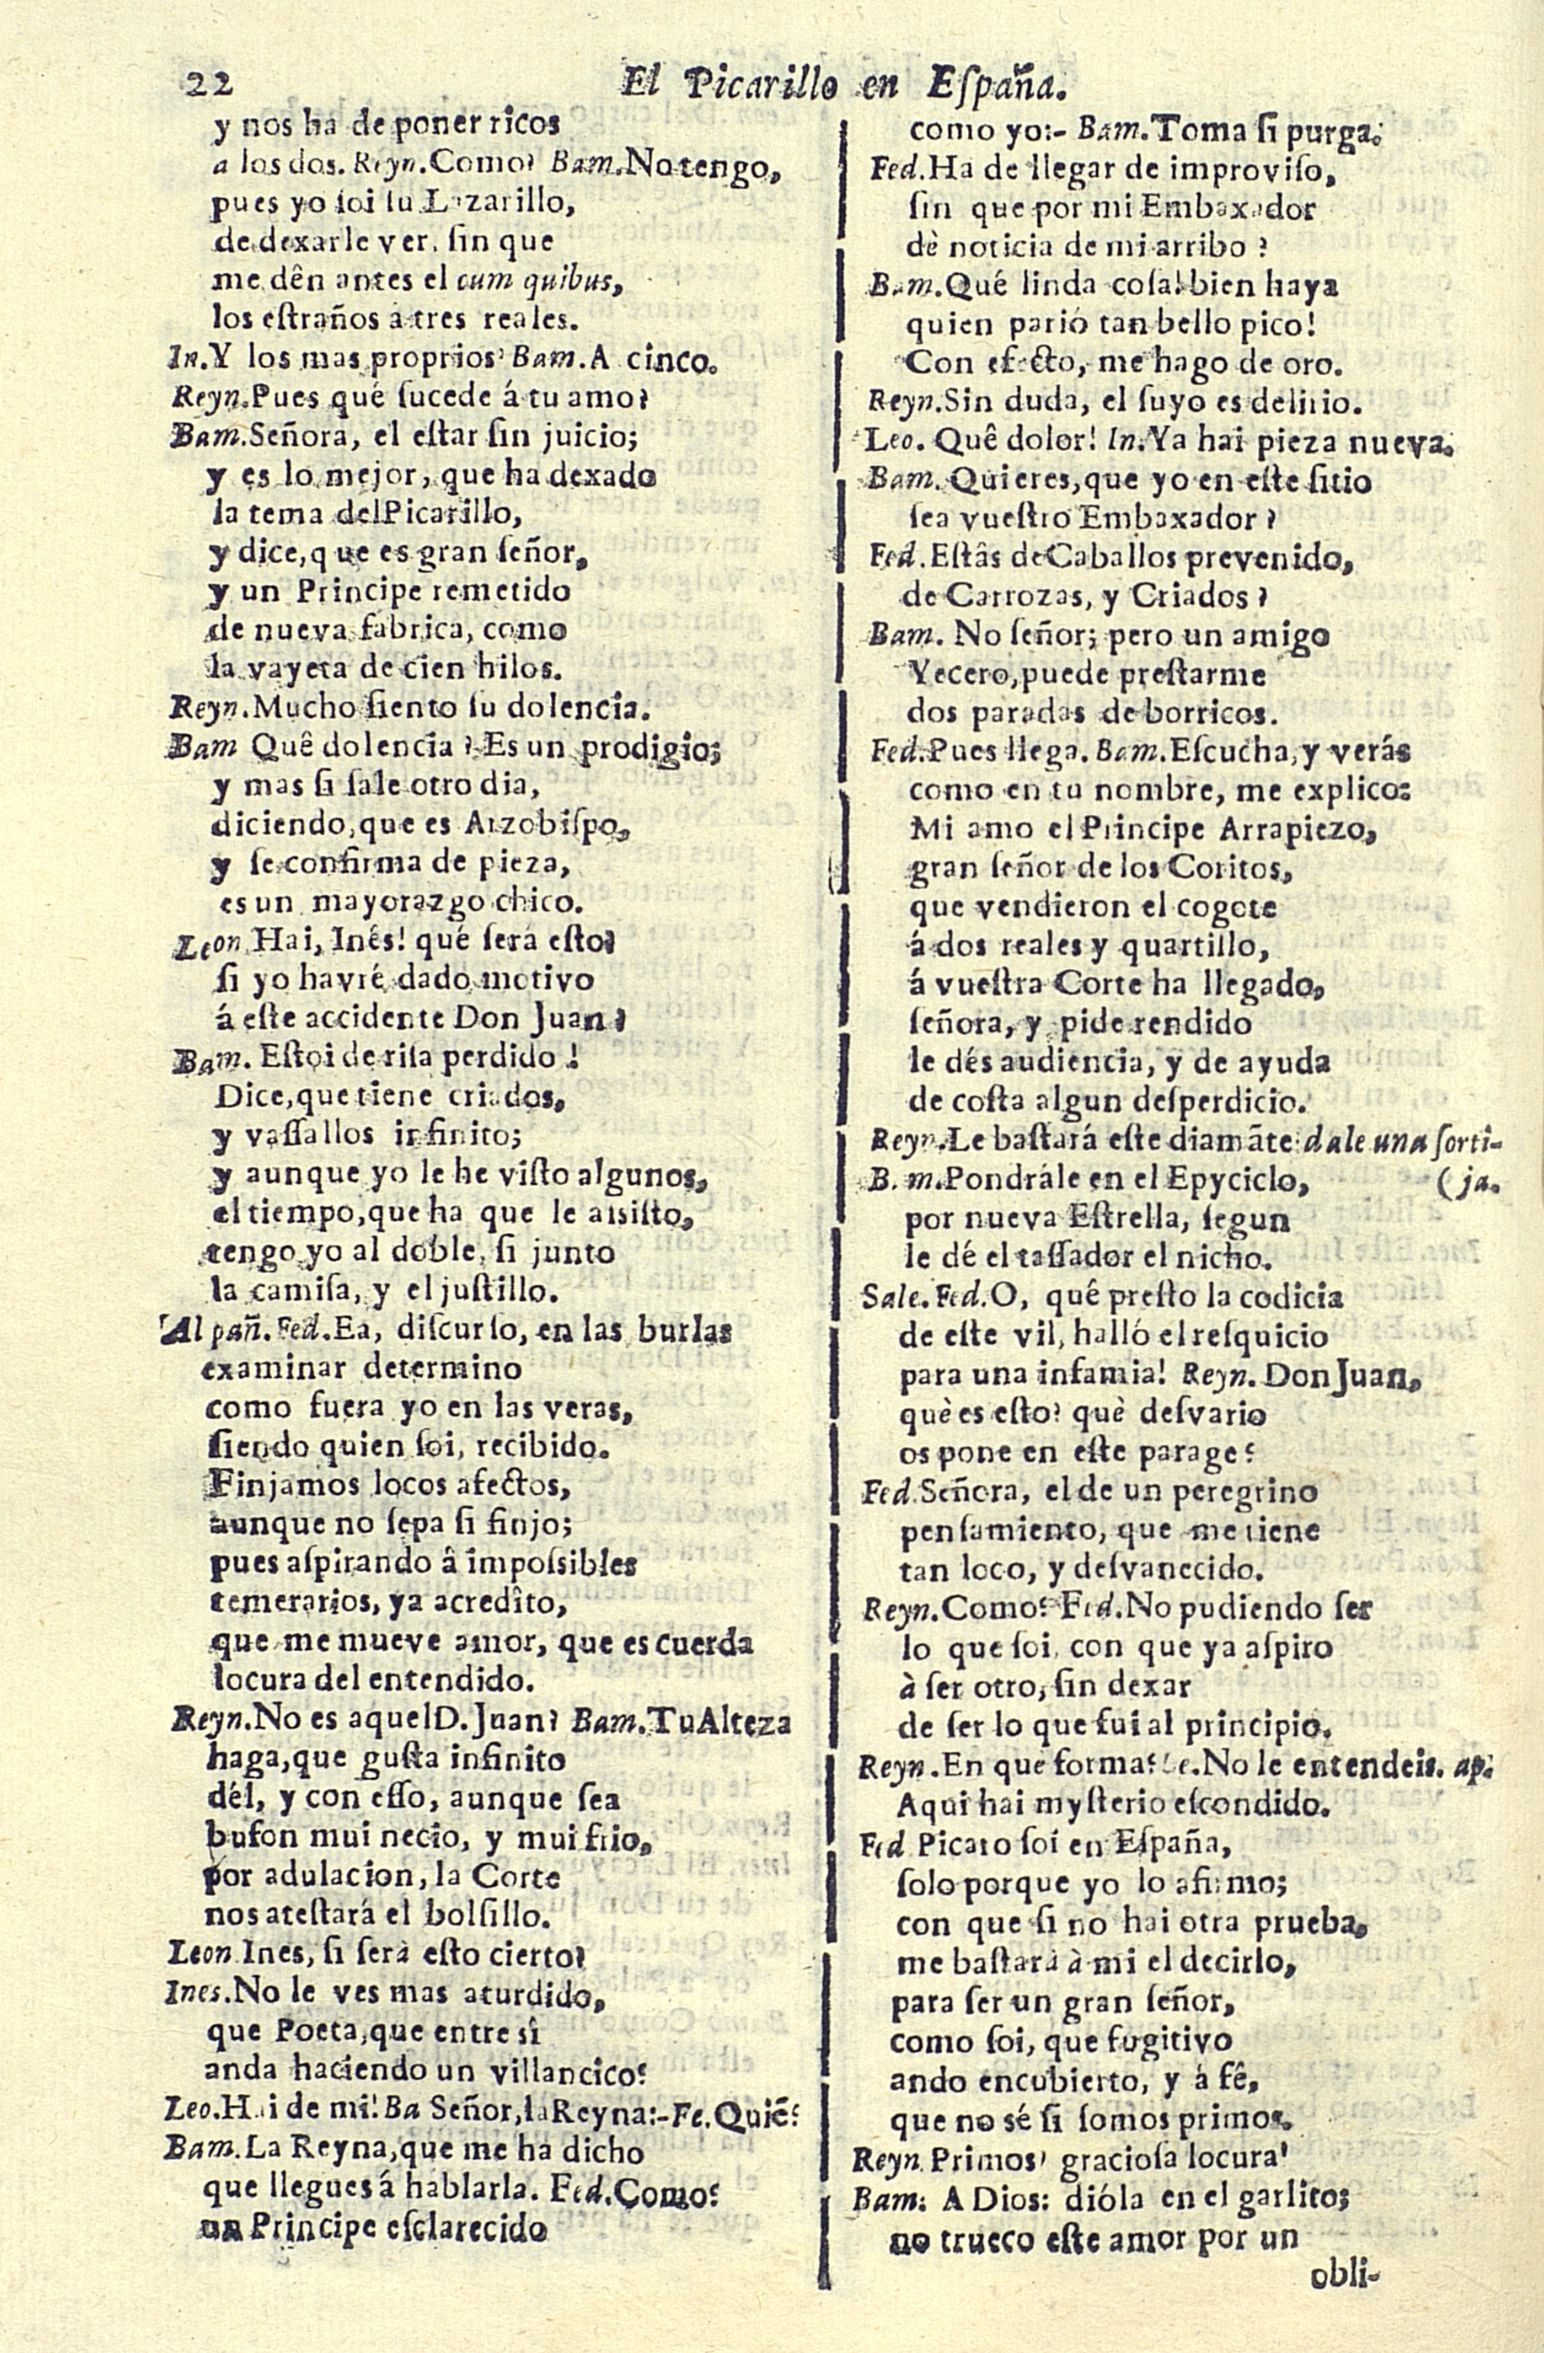 22
El Picarillo en Eſpaña.
y nos ha de poner ricos
a los dos. Reyn. Como? Bam. No tengo,
pues yo ſoi ſu Lazarillo,
de dexarle ver, ſin que
me dên antes el cum quibus,
los eſtraños á tres reales.
In. Y los mas proprios? Bam. A cinco.
Reyn. Pues qué ſucede á tu amo?
Bam. Señora, el eſtar ſin juicio;
y es lo mejor, que ha dexado
la tema del Picarillo,
y dice, que es gran ſeñor,
y un Principe remetido
de nueva fabrica, como
la vayeta de cien hilos.
Reyn. Mucho ſiento ſu dolencia.
Bam Quê dolencia? Es un prodigio;
y mas ſi ſale otro dia,
diciendo, que es Arzobiſpo,
y ſe confirma de pieza,
es un mayorazgo chico.
Leon Hai, Inés! qué ſerá eſto?
ſi yo havré dado motivo
á eſte accidente Don Juan?
Bam. Eſtoi de riſa perdido!
Dice, que tiene criados,
y vaſſallos infinito;
y aunque yo le he viſto algunos,
el tiempo, que ha que le aſsiſto,
tengo yo al doble, ſi junto
la camiſa, y el juſtillo.
Al pañ. Fed. Ea, diſcurſo, en las burlas
examinar determino
como fuera yo en las veras,
ſiendo quien ſoi, recibido.
Finjamos locos afectos,
aunque no ſepa ſi finjo;
pues aſpirando â impoſsibles
temerarios, ya acredîto,
que me mueve amor, que es cuerda
locura del entendido.
Reyn. No es aquel D. Juan? Bam. Tu Alteza
haga, que guſta infinito
dél, y con eſſo, aunque ſea
bufon mui necio, y mui frio,
por adulacion, la Corte
nos ateſtará el bolſillo.
Leon Ines, ſi ſerà eſto cierto?
Ines. No le ves mas aturdido,
que Poeta, que entre sî
anda haciendo un villancico?
Leo. Hai de mi! Ba Señor, la Reyna:- Fe. Quiẽ?
Bam. La Reyna, que me ha dicho
que llegues á hablarla. Fed. Como?
un Principe eſclarecido
como yo:- Bam. Toma ſi purga.
Fed. Ha de llegar de improviſo,
ſin que por mi Embaxador
dè noticia de mi arribo?
Bam. Qué linda coſa! bien haya
quien parió tan bello pico!
Con efecto, me hago de oro.
Reyn. Sin duda, el ſuyo es delirio.
Leo. Quê dolor! In. Ya hai pieza nueva.
Bam. Quieres, que yo en eſte ſitio
ſea vueſtro Embaxador?
Fed. Eſtâs de Caballos prevenido,
de Carrozas, y Criados?
Bam. No ſeñor; pero un amigo
Yecero, puede preſtarme
dos paradas de borricos.
Fed. Pues llega. Bam. Eſcucha, y verás
como en tu nombre, me explico:
Mi amo el Principe Arrapiezo,
gran ſeñor de los Coritos,
que vendieron el cogote
á dos reales y quartillo,
á vueſtra Corte ha llegado,
ſeñora, y pide rendido
le dés audiencia, y de ayuda
de coſta algun deſperdicio.
Reyn. Le baſtará eſte diamãte: dale una ſorti-
Bam. Pondrále en el Epyciclo, (ja.
por nueva Eſtrella, ſegun
le dé el taſſador el nicho.
Sale. Fed. O, qué preſto la codicia
de eſte vil, halló el reſquicio
para una infamia! Reyn. Don Juan,
què es eſto? què deſvario
os pone en eſte parage?
Fed. Señora, el de un peregrino
penſamiento, que me tiene
tan loco, y deſvanecido.
Reyn. Como? Fed. No pudiendo ſer
lo que ſoi, con que ya aſpiro
à ſer otro, ſin dexar
de ſer lo que fui al principio.
Reyn. En que forma? Le. No le entendeis. ap.
Aqui hai myſterio eſcondido.
Fed Picaro ſoi en Eſpaña,
ſolo porque yo lo afirmo;
con que ſi no hai otra prueba,
me baſtarà à mi el decirlo,
para ſer un gran ſeñor,
como ſoi, que fugitivo
ando encubierto, y á fê,
que no sé ſi ſomos primos.
Reyn. Primos? gracioſa locura!
Bam. A Dios: dióla en el garlito;
no trueco eſte amor por un
obli-